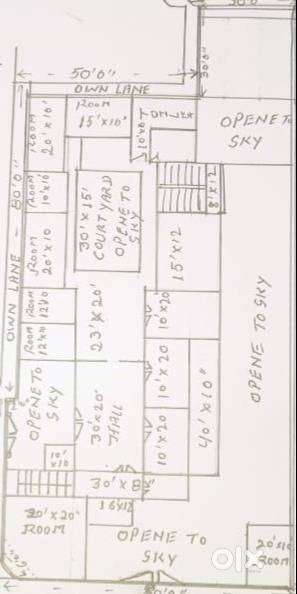 50'0"
OWN LANE
30'0"
ROOM
20'X10'
ROOM
15'X10'
TOILET
10'X10'
OPENE TO
SKY
80'0"
OWN LANE
ROOM
10'X10
30'X15'
COURTYARD
OPENE TO
SKY
8'X12
ROOM
20'X10
15'X12
ROOM
12'X10
23'X20'
10'X20
ROOM
12'X10
OPENE TO SKY
OPENE TO
SKY
30'X20'
HALL
10'X20
10'X20
40'X10"
10'
X10
30'X8"
20'X20'
ROOM
OPENE TO
SKY
ROOM
olx